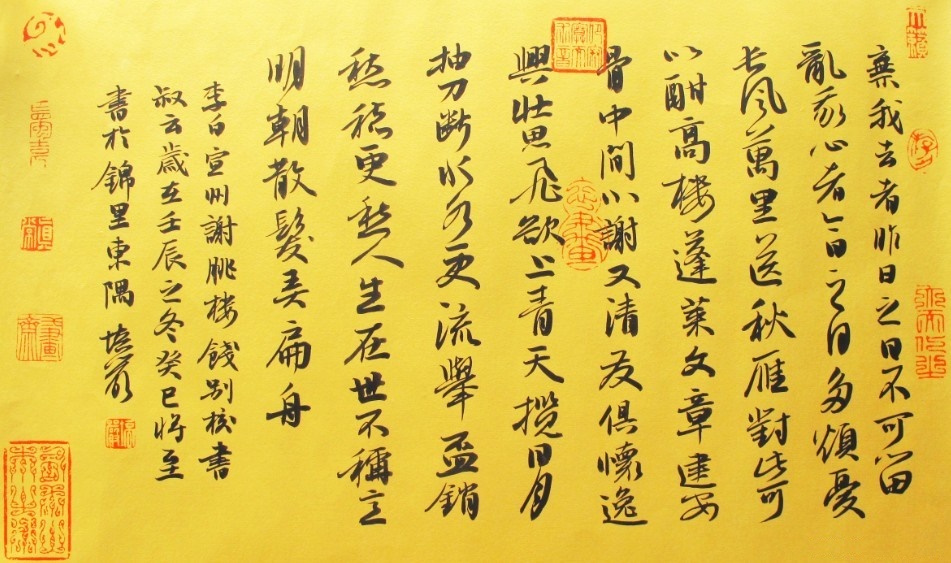 棄我去者昨日之日不可留
亂我心者今日之日多煩憂
长风萬里送秋雁對此可
以酣高楼蓬萊文章建安
骨中間小謝又清发俱懷逸
興壯思飛欲上青天攬日月
抽刀斷水水更流舉盃銷
愁愁更愁人生在世不稱意
明朝散髮弄扁舟
李白宣州謝朓楼餞別校書
叔云歲在壬辰之冬癸巳將至
書於錦里東隅